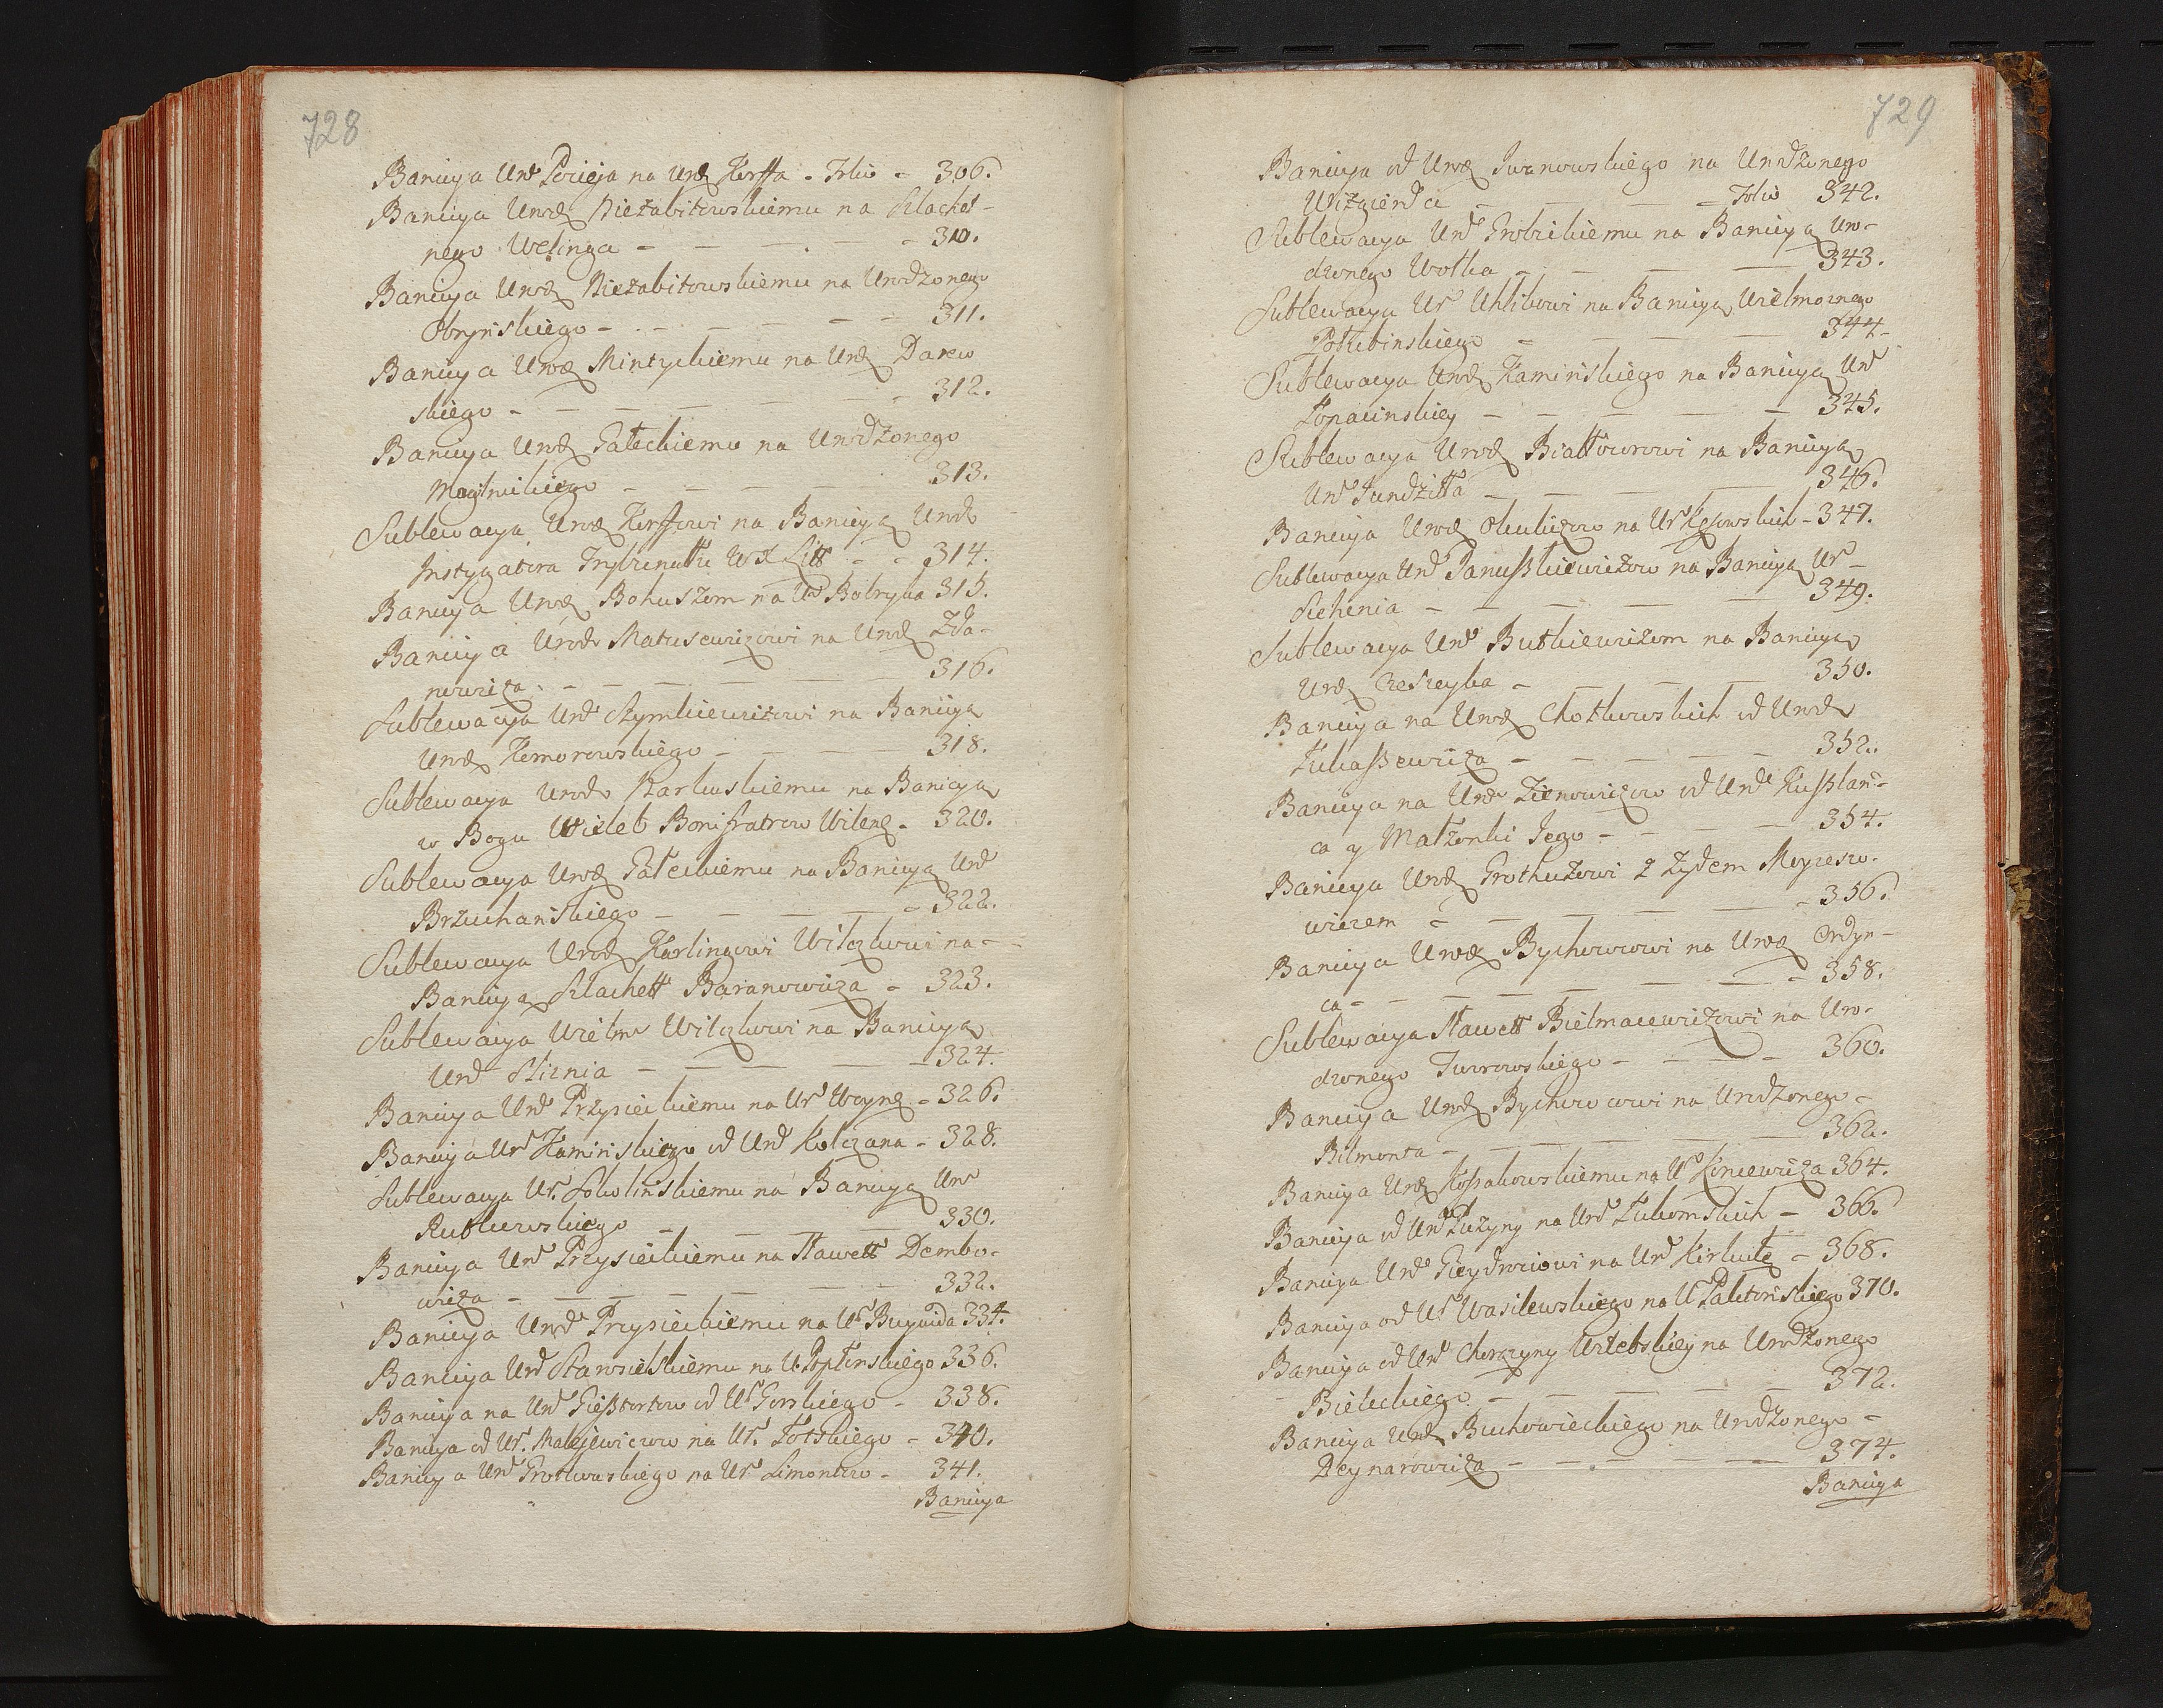 728
Banicya Urod Pocieja na Urod Korffa - Folio - 306.
Banicya Urodz Niezabitowskiemu na Szlachet-
nego Welinga - - - - - 310.
Banicya Urodz Niezabitowskiemu na Urodzonego
Obryńskiego - - - - - 311.
Banicya Urodz Mintyckiemu na Urodz Darew
skiego - - - - - 312.
Banicya Urodz Gałeckiemu na Urodzonego
Mogilnickiego - - - 313.
Sublewacya Urodz Korffowi na Banicyą Urod
Instygatora Trybunału W X Litt - - 314.
Banicya Urodz Bohuszom na Ur Bobryka 315.
Banicya Urodz Matuscewiczowi na Urodz Zda-
nowicza - - - - - 316.
Sublewacya Urod Szymkiewiczowi na Banicyą
Urodz Komorowskiego - - - - 318.
Sublewacya Urodz Karkuskiemu na Banicyą
w Bogu Wieleb Bonifratrow Wileń - 320.
Sublewacya Urodz Gałeckiemu na Banicyą Urod
Brzuchańskiego - - - - - 322.
Sublewacya Urodz Karlingowi Wilczkowi na -
Banicyą Szlachett Baranowicza - 323.
Sublewacya Wielm Wilczkowi na Banicyą
Urod Sliznia - - - - - 324.
Banicya Urod Przysieckiemu na Ur Woynę - 326.
Banicya Ur Kamińskiego od Urod Kolczana - 328.
Sublewacya Ur. Sokolińskiemu na Banicyą Uro
Rutkowskiego - - - 330.
Banicya Urod Przysieckiemu na Sławett Dembo-
wicza - - - - - 332.
Banicya Urod Przysieckiemu na Ur Buywida 334.
Banicya Urod Starosielskiemu na U. Popłońskiego 336.
Banicya na Urod Giesztortow od Ur Gorskiego - 338.
Banicya od Ur. Malejewiczow na Ur. Zotskiego - 340.
Banicya Urod Grotkowskiego na Ur Limontow - 341.
Banicya
729
Banicya od Urodz Iwanowskiego na Urodzonego
Wizgierda - - - - Folio 342.
Sublewacya Urod Grobickiemu na Banicyą Uro-
dzonego Wołka - - - - 343.
Sublewacya Ur Uhlikowi na Banicyą Wielmoznego
Połubinskiego - - - - 344.
Sublewacya Urodz Kamińskiego na Banicyą Urod
Łopacinskiey - - - - 345.
Sublewacya Urodz Białłozorowi na Banicyą
Urod Jundziłła - - - - 346.
Banicya Urodz Okuliczow na Ur Kęsowskich - 347.
Sublewacya Urod Januszkiewiczow na Banicyą Ur-
Siehenia - - - - 349.
Sublewacya Urod Butkiewiczom na Banicyą
Urodz Czeszeyka - - - - 350.
Banicya na Urodz Chotkowskich od Urodz
Łukaszewicza - - - - 352.
Banicya na Urod Zienowiczow od Urod Kuszlan-
ca y Małzonki Jego - - - - 354.
Banicya Urodz Grothuzowi z Zydem Moyzeszo-
wiczem - - - - - 356.
Banicya Urodz Bychowcowi na Urodz Ordyn-
ca - - - - - 358.
Sublewacya Sławett Bielmacewiczowi na Uro-
dzonego Turowskiego - - - - 360.
Banicya Urodz Bychowcowi na Urodzonego -
Bilmonta - - - - - 362.
Banicya Urodz Kossakowskiemu na Ur Koncewicza 364.
Banicya od Urod Puzyny na Urod Łukomskich - 366.
Banicya Urod Gieydrociowi na Urod Kirkułę - 368.
Banicya od Ur Wasilewskiego na Ur Zaletońskiego 370.
Banicya od Urod Chorązyny Witebskiey na Urodzonego
Bieleckiego - - - - 372.
Banicya Urodz Buchowieckiego na Urodzonego -
Reynarowicza - - - - - 374.
Banicya